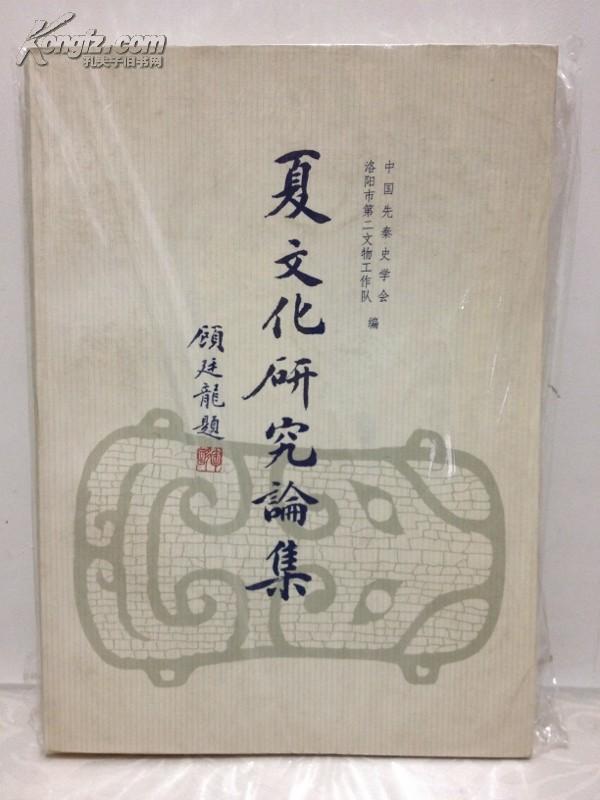 Kongfz.com
孔夫子旧书网
中国先秦史学会
洛阳市第二文物工作队 编
夏文化研究論集
顧廷龍題